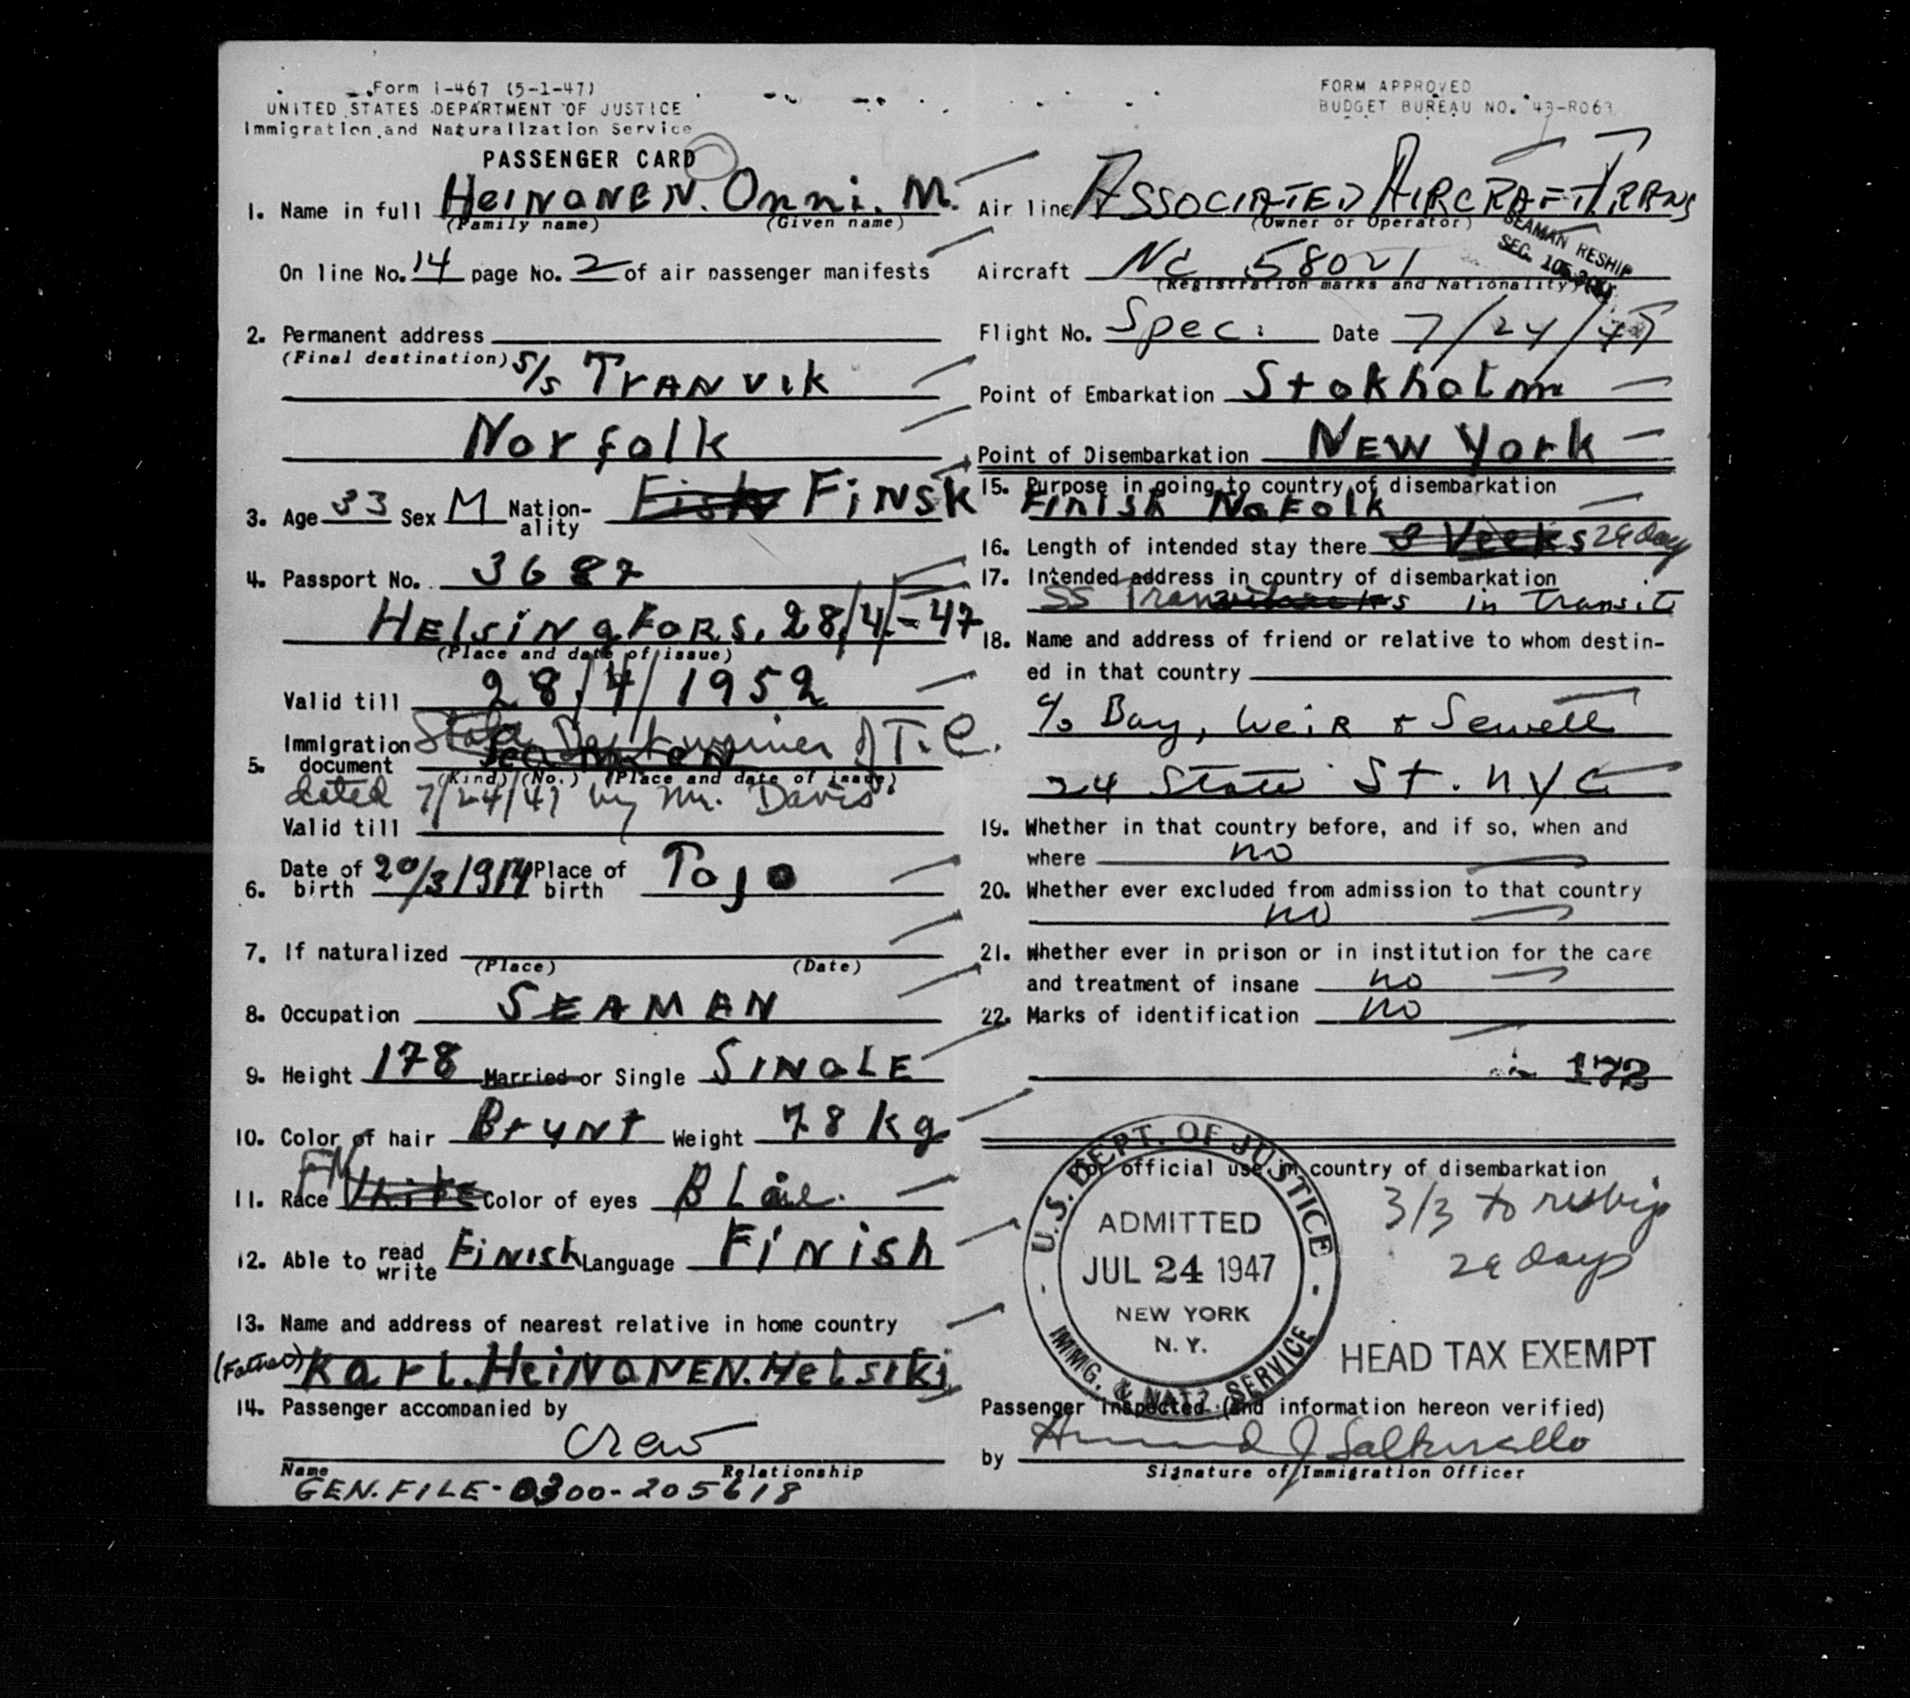 Form I-467 (5-1-47)
UNITED STATES DEPARTMENT OF JUSTICE
Immigration and Naturalization Service
PASSENGER CARD
1. Name in full HEINONEN. Onni. M.
(Family name) (Given name)
On line No. 14 page No. 2 of air passenger manifests
2. Permanent address
(Final destination) S/S TRANVIK
Norfolk
3. Age 33 Sex M Nation-ality Fish FINSK
4. Passport No. 3687
HELSINGFORS. 28/4-47
(Place and date of issue)
Valid till 28/4/1952
5. Immigration document State Dept waiver of T.C.
SEAMAN
(Kind) (No.) (Place and date of issue)
dated 7/24/47 by Mr. Davis
Valid till
6. Date of birth 20/3 1914 Place of birth Tojo
7. If naturalized
(Place) (Date)
8. Occupation SEAMAN
9. Height 178 Married or Single SINGLE
10. Color of hair Brynt Weight 78 kg
11. Race FIN White Color of eyes
12. Able to read write FINISH Language FINISH
13. Name and address of nearest relative in home country
(Father) Karl. HEINONEN. Helsiki
14. Passenger accompanied by
crew
Name Relationship
GEN. FILE-0300-205618
FORM APPROVED
BUDGET BUREAU NO. 43-R063
Air line ASSOCIATED AIRCRAFT TRANS
(Owner or Operator)
SEAMAN RESHIP
SEC.
Aircraft NC 58021
(Registration marks and Nationality)
Flight No. Spec: Date 7/24/47
Point of Embarkation Stokholm
Point of Disembarkation NEW York
15. Purpose in going to country of disembarkation
Finish Nofolk
16. Length of intended stay there 3 Veeks 29 days
17. Intended address in country of disembarkation
SS in Transit
18. Name and address of friend or relative to whom destin-
ed in that country
c/o Bay, Weir & Sewell
24 State St. NYC
19. Whether in that country before, and if so, when and
where no
20. Whether ever excluded from admission to that country
no
21. Whether ever in prison or in institution for the care
and treatment of insane no
22. Marks of identification no
173
For official use in country of disembarkation
U.S. DEPT. OF JUSTICE
ADMITTED
JUL 24 1947
NEW YORK
N. Y.
IMMG. & NATZ. SERVICE
3/3 to reship
29 days
HEAD TAX EXEMPT
Passenger inspected (and information hereon verified)
by
Signature of Immigration Officer